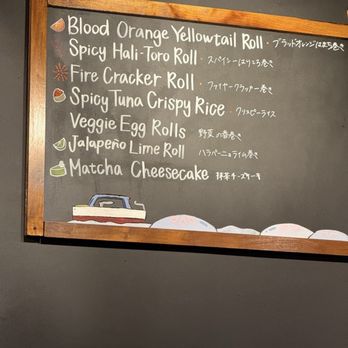 Blood Orange Yellowtail Roll · ブラッドオレンジはまち巻き
Spicy Hali-Toro Roll · スパイシーはりとろ巻き
Fire Cracker Roll · ファイヤークラッカー巻き
Spicy Tuna Crispy Rice · クリスピーライス
Veggie Egg Rolls 野菜の春巻き
Jalapeño Lime Roll ハラペーニョライム巻き
Matcha Cheesecake 抹茶チーズケーキ